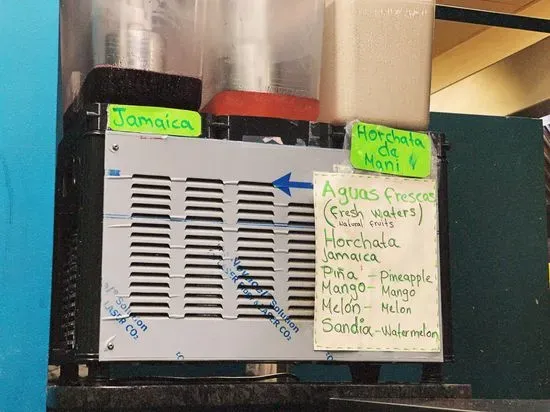 Jamaica
Horchata
de
Mani
Aguas frescas
(fresh waters)
natural fruits
Horchata
Jamaica
Piña - Pineapple
Mango - Mango
Melon - Melon
Sandia - Watermelon
LASER CO₂
LASER CO₂